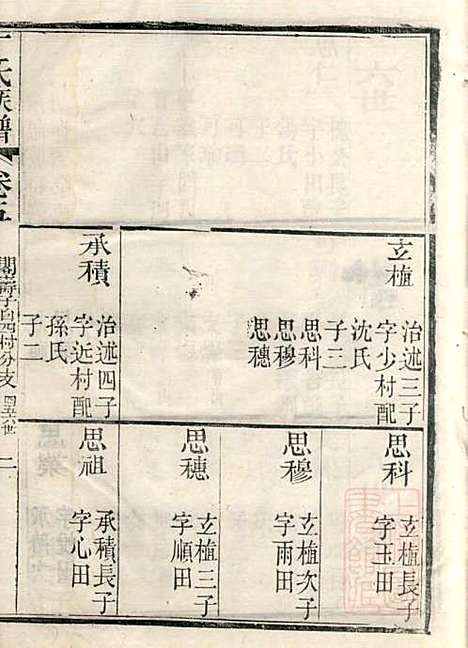 立植
治述三子
字少村配
沈氏
子三
思科
思穆
思穗
承積
治述四子
字近村配
孫氏
子二
思科
立植長子
字玉田
思穆
立植次子
字雨田
思穗
立植三子
字順田
思祖
承積長子
字心田
氏族譜
卷五
閣壽子自西村分支
四五六世
二